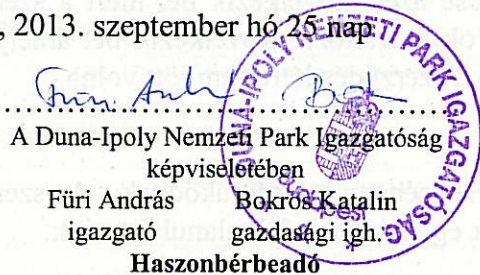 , 2013. szeptember hó 25 nap
A Duna-Ipoly Nemzeti Park Igazgatóság
képviseletében
Füri András Bokros Katalin
igazgató gazdasági igh.
Haszonbérbeadó
DUNA-IPOLY NEMZETI PARK IGAZGATÓSÁG
Budapest